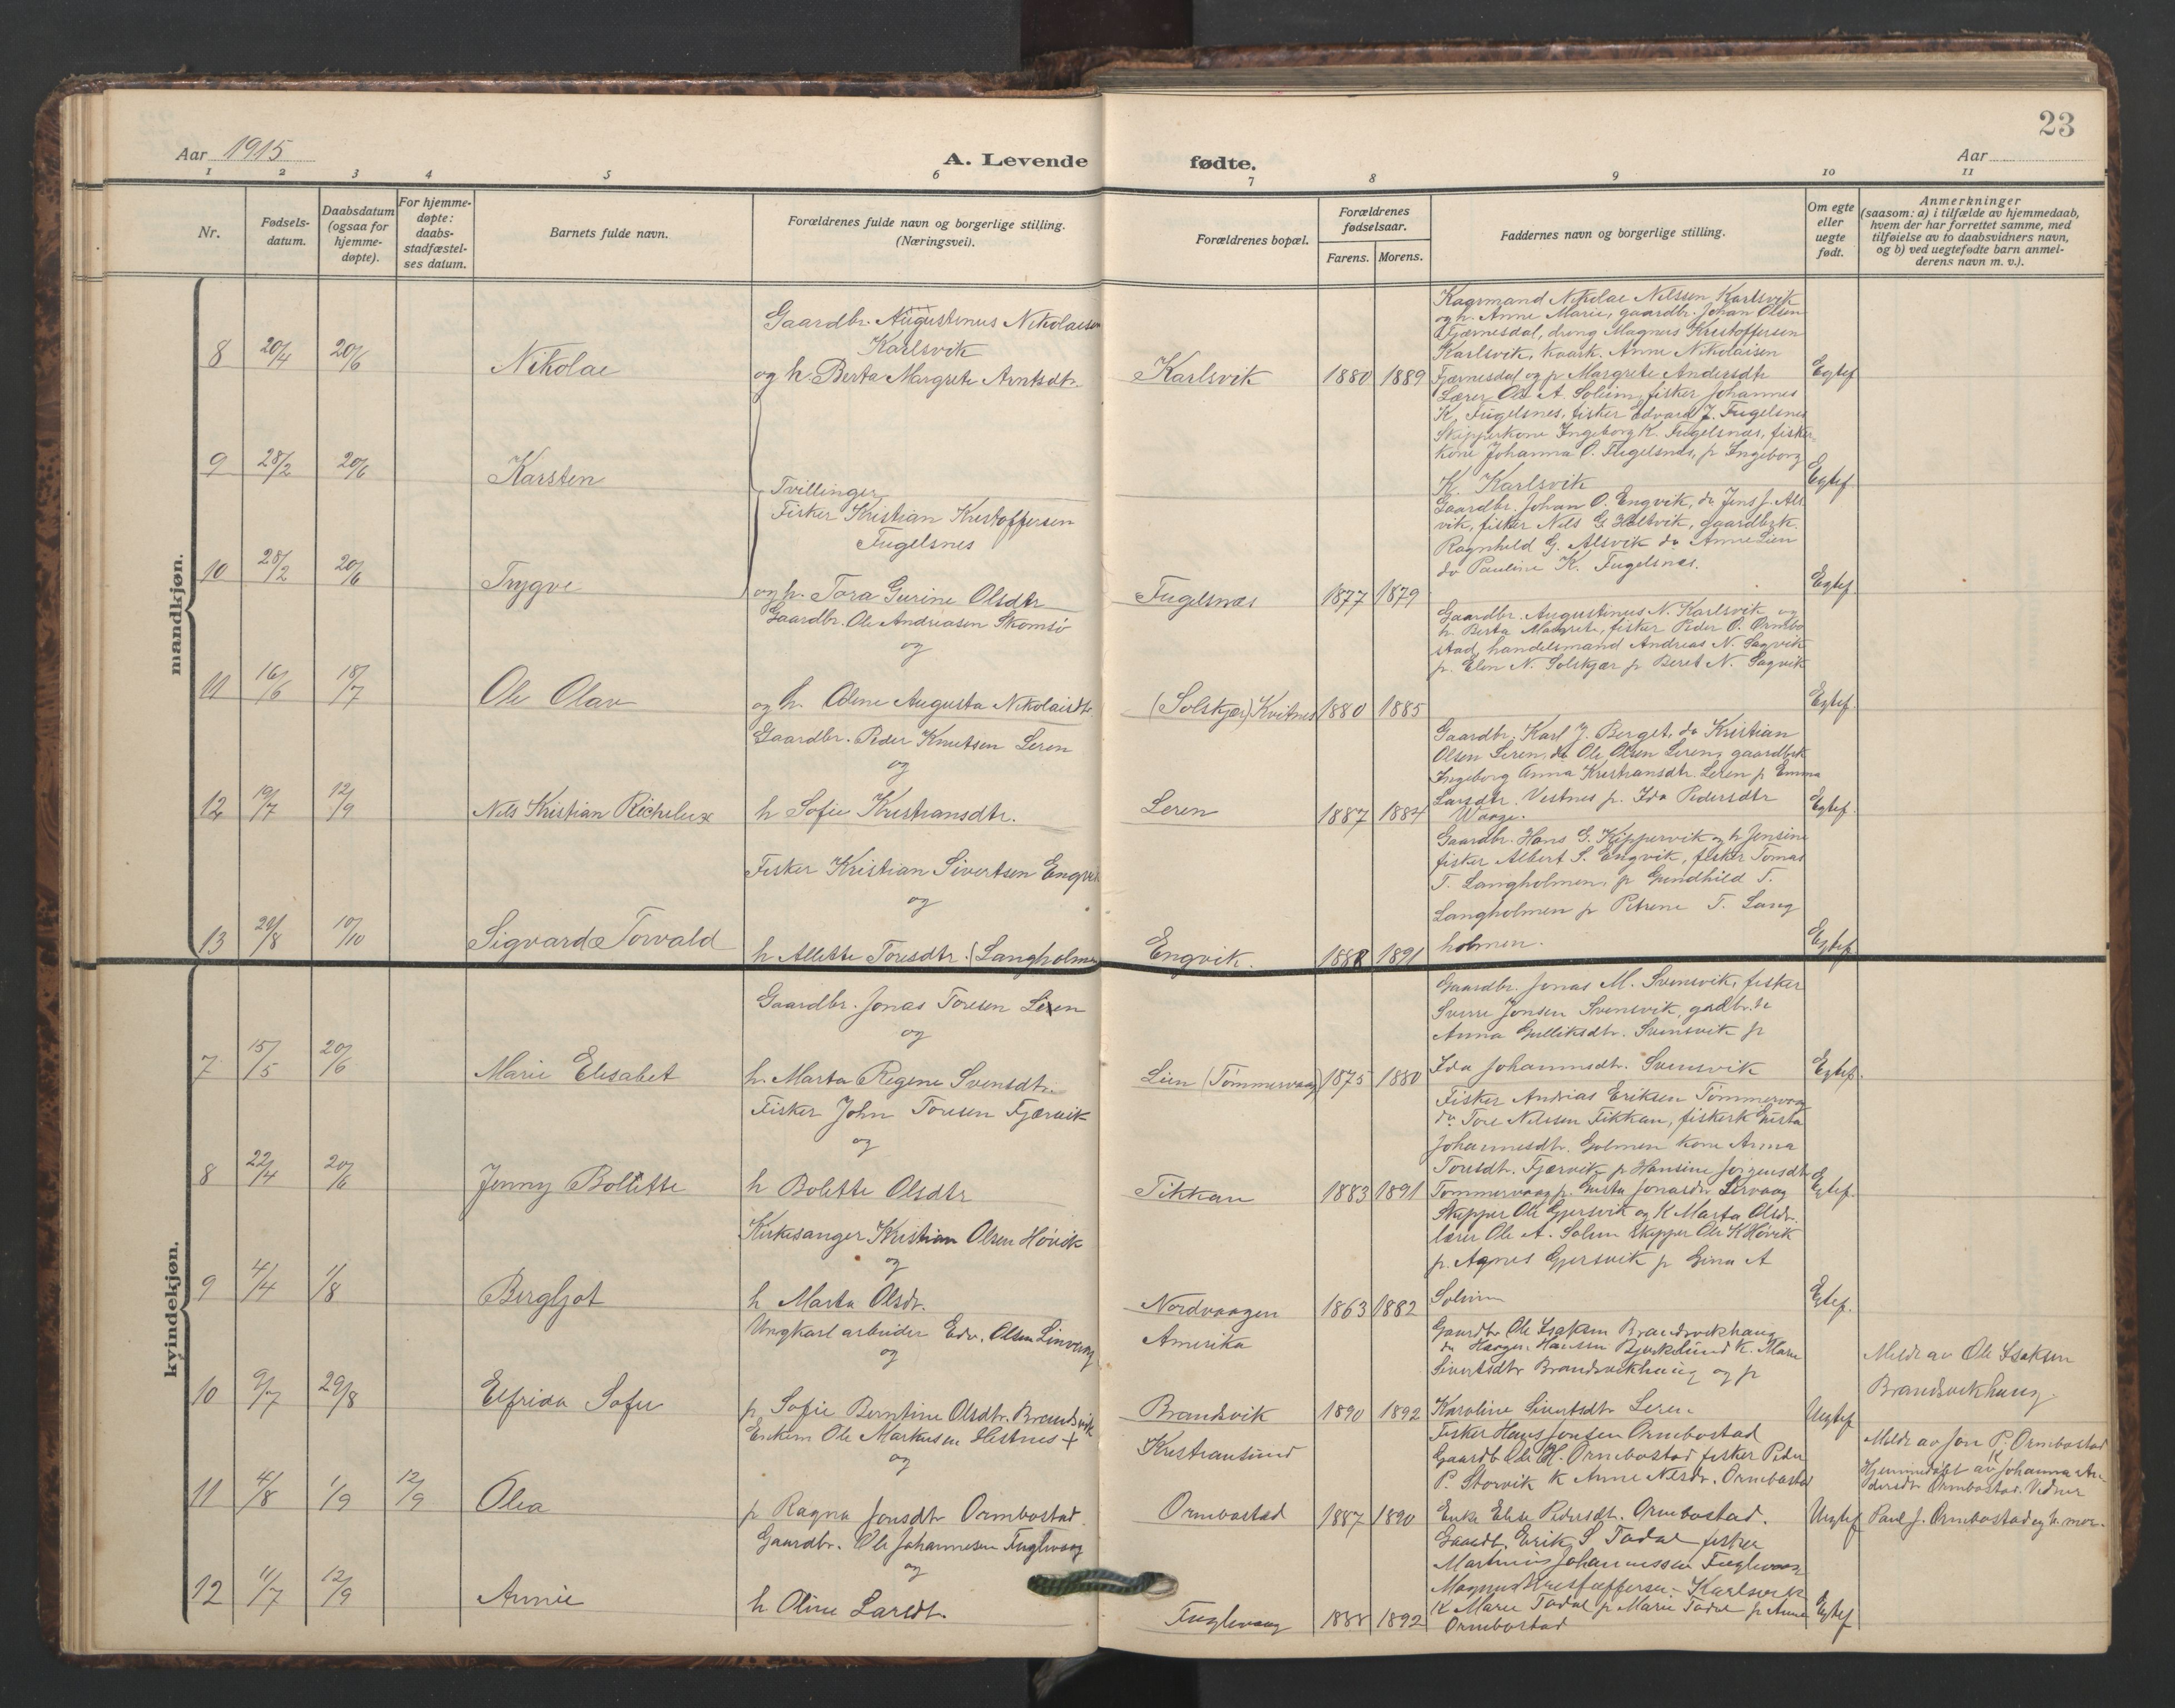 23
Aar 1915
A. Levende fødte.
Aar
1 2 3 4 5 6 7 8 9 10 11
Nr.
Fødsels-
datum.
Daabsdatum
(ogsaa for
hjemme-
døpte).
For hjemme-
døpte:
daabs-
stadfæstel-
ses datum.
Barnets fulde navn.
Forældrenes fulde navn og borgerlige stilling.
(Næringsvei).
Forældrenes bopæl.
Forældrenes
fødselsaar.
Farens. Morens.
Faddernes navn og borgerlige stilling.
Om egte
eller
uegte
født.
Anmerkninger
(saasom: a) i tilfælde av hjemmedaab,
hvem der har forrettet samme, med
tilføielse av to daabsvidners navn,
og b) ved uegtefødte barn anmel-
derens navn m. v.).
mandkjøn.
8 20/4 20/6 Nikolai
Gaardbr. Augustinus Nikolaisen
Karlsvik
og h. Berta Margrete Arntsdtr
Karlsvik 1880 1889
Kaarmand Nikolai Nilssen Karlsvik
og h. Anne Marie, gaardbr. Johan Olsen
Fjærnesdal, dreng Magnus Kristoffersen
Karlsvik, kaark. Anne Nikolaisen
Fjærnesdal og p Margrete Andersdtr
Egtef
9 28/2 20/6 Karsten
Lærer Ole A. Solem, fisker Johannes
K. Fugelsnes, fisker Edvard J. Fugelsnes
Skipperkone Ingeborg K. Fugelsnæs, fisker-
kone Johanna O. Fugelsnæs, p Ingeborg
K. Karlsvik
Egtef.
Tvillinger
Fisker Kristian Kristoffersen
Fugelsnes
10 28/2 20/6 Trygve
og h. Tora Gurine Olsdtr
Fugelsnæs 1877 1879
Gaardbr. Johan O. Engvik, do Jens J. Als
vik, fisker Nils G. Holtvik, gaardbrk.
Ragnhild G. Alsvik do Anne Lien
do Pauline K. Fugelsnæs.
Egtef.
11 16/6 18/7 Ole Olav
Gaardbr. Ole Andreasen Skomsö
og
og h. Oline Augusta Nikolaisdtr.
(Solskjær) Kvitnes 1880 1885
Gaardbr. Augustinus N. Karlsvik og
h. Berta Margrete, fisker Peder O. Ormbo
stad, handelsmand Andreas N. Sagvik
p. Elen N. Solskjær p Beret N. Sagvik
Egtef.
12 19/7 12/9 Nils Kristian Richelieu
Gaardbr. Peder Knutsen Leren
og
h Sofie Kristiansdtr.
Leren 1887 1884
Gaardbr. Karl J. Berget, do Kristian
Olsen Leren, do Ole Olsen Leren, gaardbrk
Ingeborg Anna Kristiansdtr. Leren p Emma
Larsdtr. Vestnes p. Ida Pedersdtr
Waage.
Egtef.
13 20/8 10/10 Sigvard Torvald
Fisker Kristian Sivertsen Engvik
og
h Allette Toresdtr. (Langholmen
Engvik. 1888 1891
Gaardbr. Hans G. Kippervik og h Jensine
fisker Albert S. Engvik, fisker Tomas
T. Langholmen, p Gundhild T.
Langholmen p Petrene T. Lang
holmen.
Egtef.
kvindekjøn.
7 15/5 20/6 Marie Elisabet
Gaardbr. Jonas Toresen Lien
og
h. Marta Regine Svensdtr.
Lien (Tömmervaag) 1875 1880
Gaardbr. Jonas M. Svensvik, fisker
Sverre Jonsen Svensvik, gaardbr.k
Anna Gulliksdtr. Svensvik p
Ida Johannsdtr. Svensvik
Egtef.
8 22/4 20/6 Jenny Bolette
Fisker John Toresen Fjærvik
og
h Bolette Olsdtr
Tikkan 1883 1891
Fisker Andrias Eriksen Tömmervaag
do Tore Nilssen Tikkan, fiskerk Gurta
Johannesdtr. Golmen kone Anna
Toresdtr. Fjærvik p Hansine Jörgensdtr
Tömmervaag p. Gusta Jonasdtr Lervaag
Egtef.
9 4/4 1/8 Bergljot
Kirkesanger Kristian Olsen Hövik
og
h Marta Olsdr.
Nordvaagen 1863 1882
Skipper Ole Gjersvik og K Marta Olsdr.
lærer Ole A. Solem Skipper Ole K Hövik
p. Agnes Gjersvik p Gina A
Solem
Egtef.
10 9/7 29/8 Elfrida Sofie
Ungkarl arbeider Edv. Olsen Linvaag
og
p Sofie Berntine Olsdtr. Brandsvik
Amerika
Brandsvik 1890 1892
Gaardbr Ole Isaksen Brandsvikhaug
do Haagen Hanssen Bjerkelund K. Marie
Sivertsdtr Brandsvikhaug og p
Karoline Sivertsdtr Leren
Uegtef
Meldt av Ole Isaksen
Brandsvikhaug.
11 4/8 1/9 12/9 Olea
Enkem Ole Markusen Hestnes +
og
p Ragna Jonsdtr Ormbostad.
Kristiansund
Ormbostad 1887 1890
Fisker Hans Jonsen Ormbostad
Gaardb Ole H. Ormbostad fisker Peder
P. Storvik K Anne Nilsdr. Ormbostad
Enke Elise Pedersdtr. Ormbostad.
Uegtef
Meldt av Jon P. Ormbostad
Hjemmedøbt av K Johanna An-
dersdtr Ormbostad. Vidner
Paul J. Ormbostad og b. mor.
12 11/7 12/9 Annie
Gaardbr. Ole Johannesen Fuglvaag
og
h Oline Larsdt.
Fuglevaag 1888 1892
Gaardb. Erik S Todal fisker
Martinus Johannessen Fuglevaag
Magnus Kristoffersen Karlsvik
K Marie Todal p Marie Todal p Anna
Ormbostad
Egtef